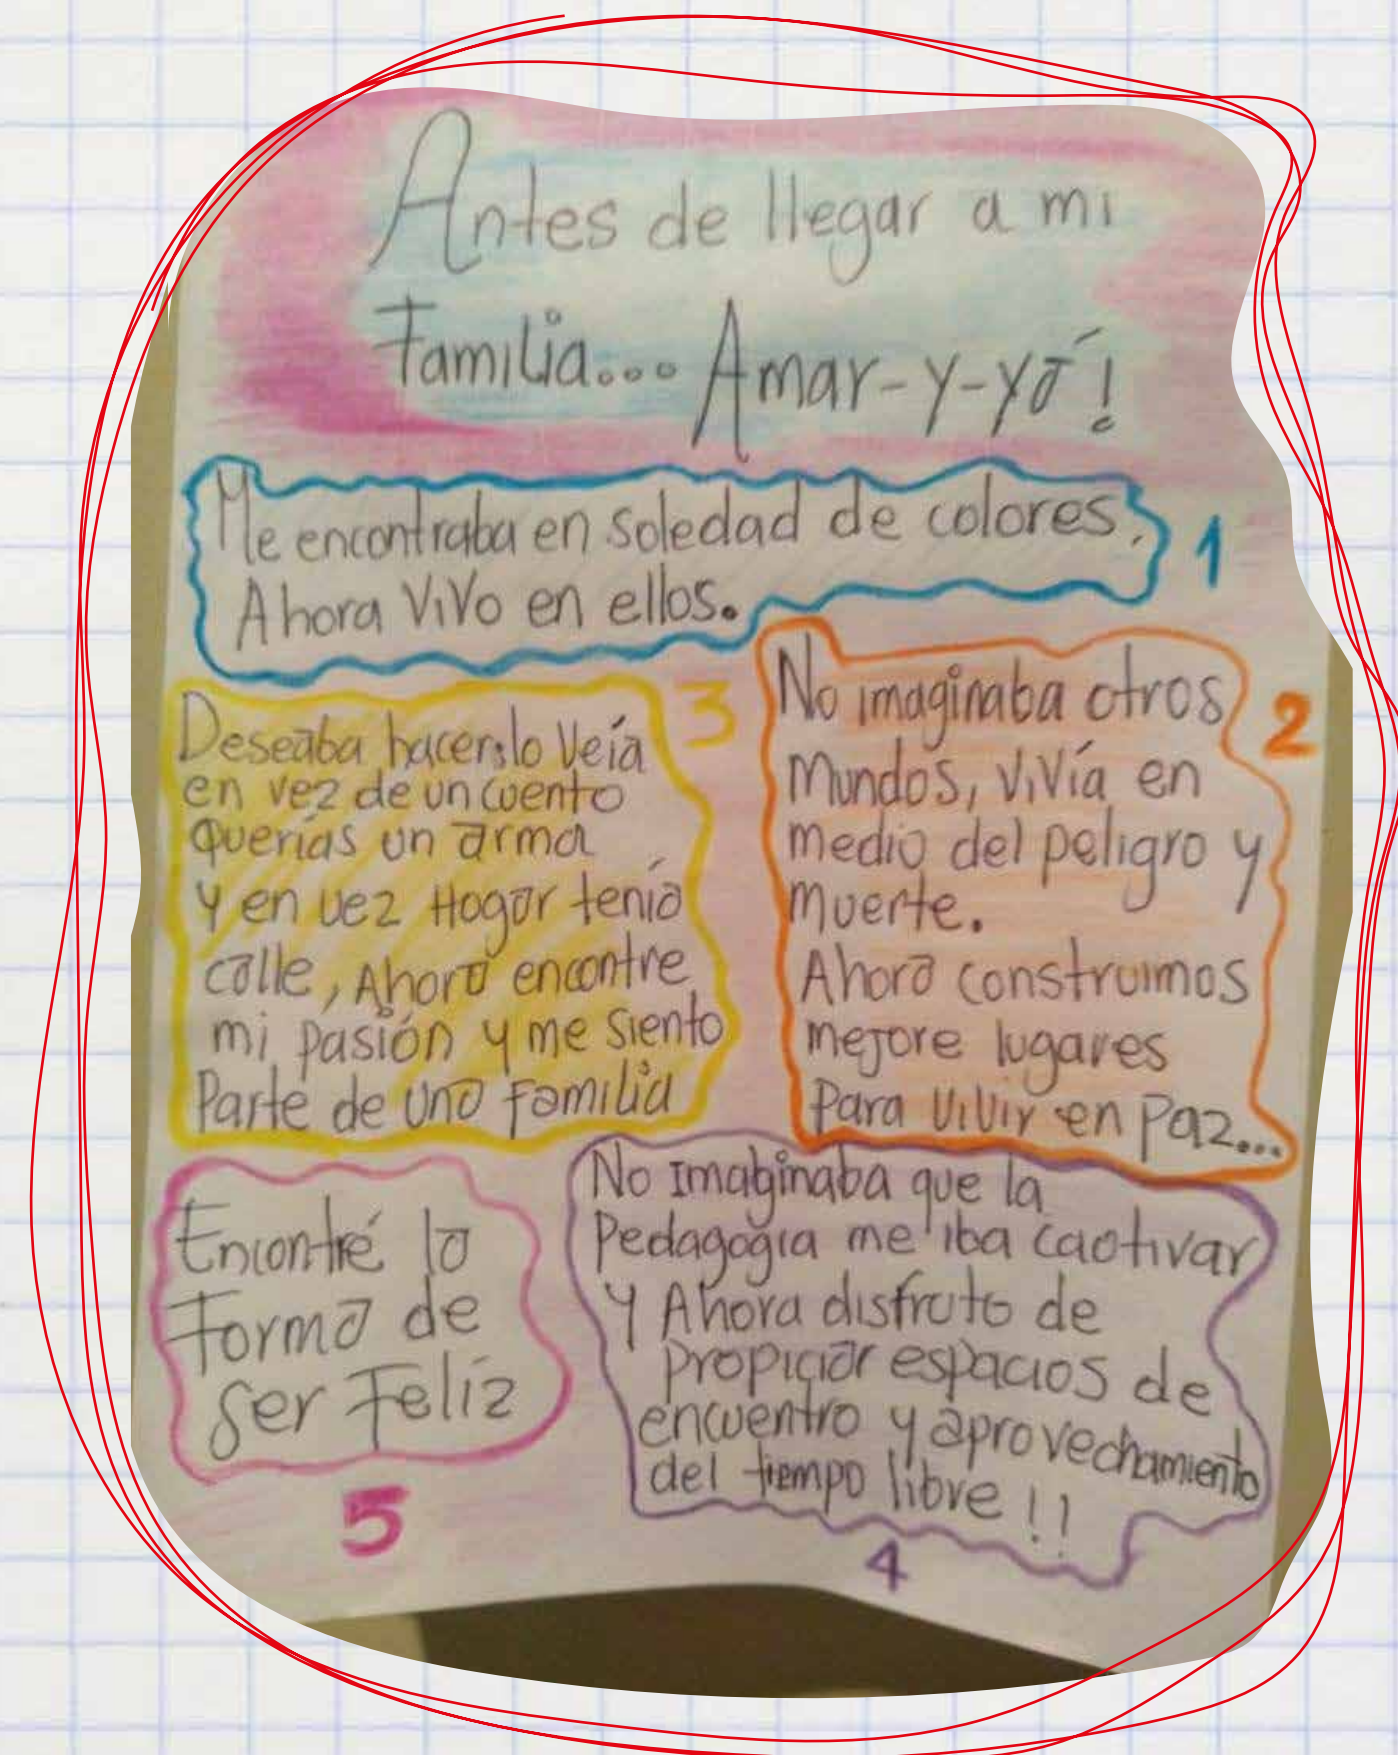 Antes de llegar a mi
Familia... Amar-y-yó!
Me encontraba en soledad de colores,
Ahora vivo en ellos.
1
No imaginaba otros
mundos, vivía en
medio del peligro y
muerte.
Ahora construimos
mejore lugares
para vivir en paz...
2
Deseaba hacerlo veía
en vez de un cuento
querías un arma
y en vez Hogar tenía
calle, Ahora encontre
mi pasión y me siento
Parte de una familia
3
No imaginaba que la
pedagogía me iba caotivar
y Ahora disfruto de
propiciar espacios de
encuentro y aprovechamiento
del tiempo libre !!
4
Encontré la
forma de
ser Feliz
5